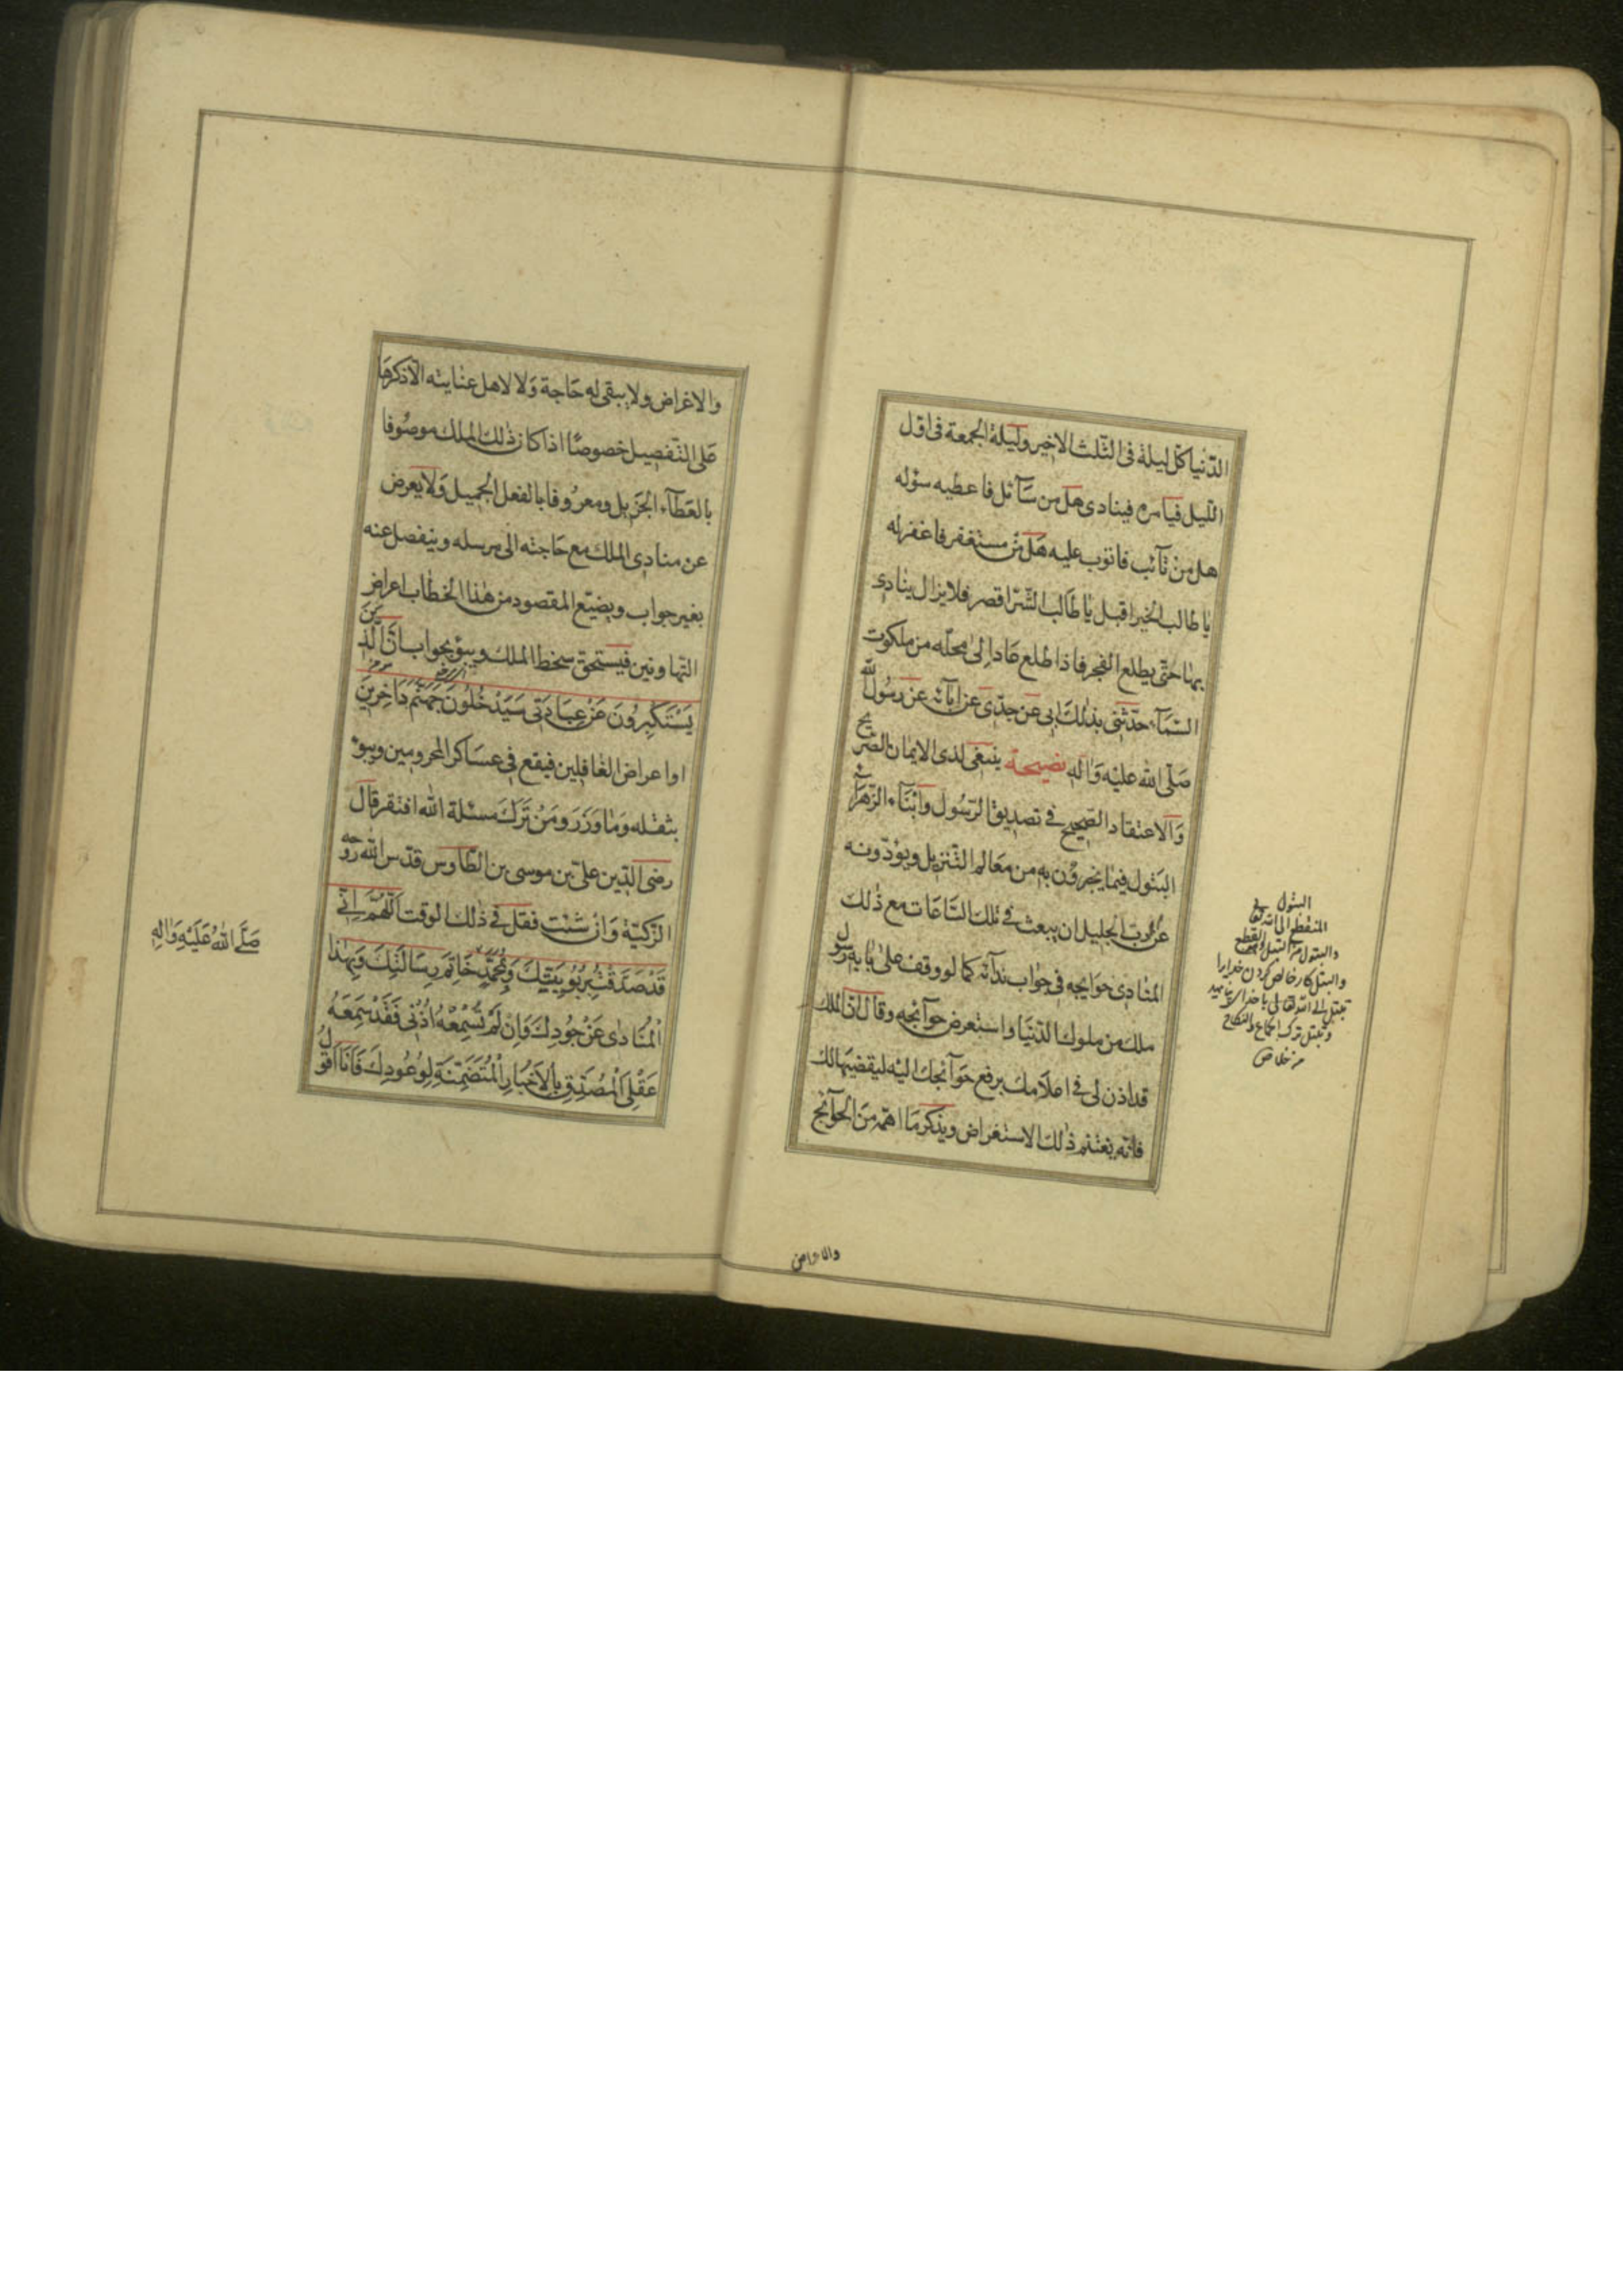 الدّنيا كلّ ليلة فى الثّلث الاخير وليلة الجمعة فى اوّل
اللّيل فيأمره فينادى هل من سآئل فاعطيه سؤله
هل من تآئب فاتوب عليه هل من مستغفر فاغفر له
يا طالب الخير اقبل يا طالب الشّرّ اقصر فلا يزال ينادى
بهذا حتّى يطلع الفجر فاذا طلع عاد الى محلّه من ملكوت
السّمآء حدّثنى بذلك ابى عن جدّى عن آبآئه عن رسول الله
صلّى الله عليه واله نصيحة ينبغى لذى الايمان الصّريح
والاعتقاد الصّحيح فى تصديق الرّسول وابنآء الزّهرآء
البتول فيما يخبرون به من معالم التّنزيل ويؤدّونه
عن الربّ الجليل ان يبعث فى تلك السّاعات مع ذلك
المنادى حوايجه فى جواب ندآئه كما لو وقف على بابه رسول
ملك من ملوك الدّنيا واستعرض حوآئجه وقال انّ الملك
قد اذن لى فى اعلامك برفع حوآئجك اليه ليقضيها لك
فانّه يغتنم ذلك الاستغراض ويذكر ما اهمّه من الحوآئج
البتول
المنقطع الى الله تعالى
والبتول من التبتل القطع
والتبتل كار خالص كردن خدايرا
وتبتل ترك الجماع والنكاح
من خلاص
والاغراض
والاغراض ولا يبقى له حاجة ولا لاهل عنايته الّا ذكرها
على التّفصيل خصوصًا اذا كان ذلك الملك موصوفا
بالعطآء الجزيل ومعروفا بالفعل الجميل ولا يعرض
عن منادى الملك مع حاجته الى مرسله وينفصل عنه
بغير جواب ويضيّع المقصود من هذا الخطاب اعراض
التهاونين فيستحق سخط الملك ويبوؤ بجواب انّ الّذين
يَسْتَكْبِرُونَ عَنْ عِبَادَتِى سَيَدْخُلُونَ جَهَنَّمَ دَاخِرِينَ
او اعراض الغافلين فيقع فى عساكر المحرومين ويبوء
بثقله وما وزر ومن ترك مسئلة الله افتقر قال
رضى الدّين علىّ بن موسى بن الطّاوس قدّس الله روحه
الزّكيّة وان شئت فقل فى ذلك الوقت اَللّهُمَّ اِنّى
قَدْ صَدَّقْتُ بِرُبُوبِيَّتِكَ وَبِمُحَمَّدٍ خَاتِمِ رِسَالَتِكَ وَبِهٰذَا
صَلَّى اللهُ عَلَيْهِ وَالِهِ
الْمُنَادى عَنْ جُودِكَ وَاِنْ لَمْ تَسْمَعْهُ اُذُنى فَقَدْ سَمِعَهُ
عَقْلِىَ الْمُصَدِّقِ بِالْاَخْبَارِ الْمُتَضَمِّنَةِ لِوُعُودِكَ فَاَنَا اَقُولُ